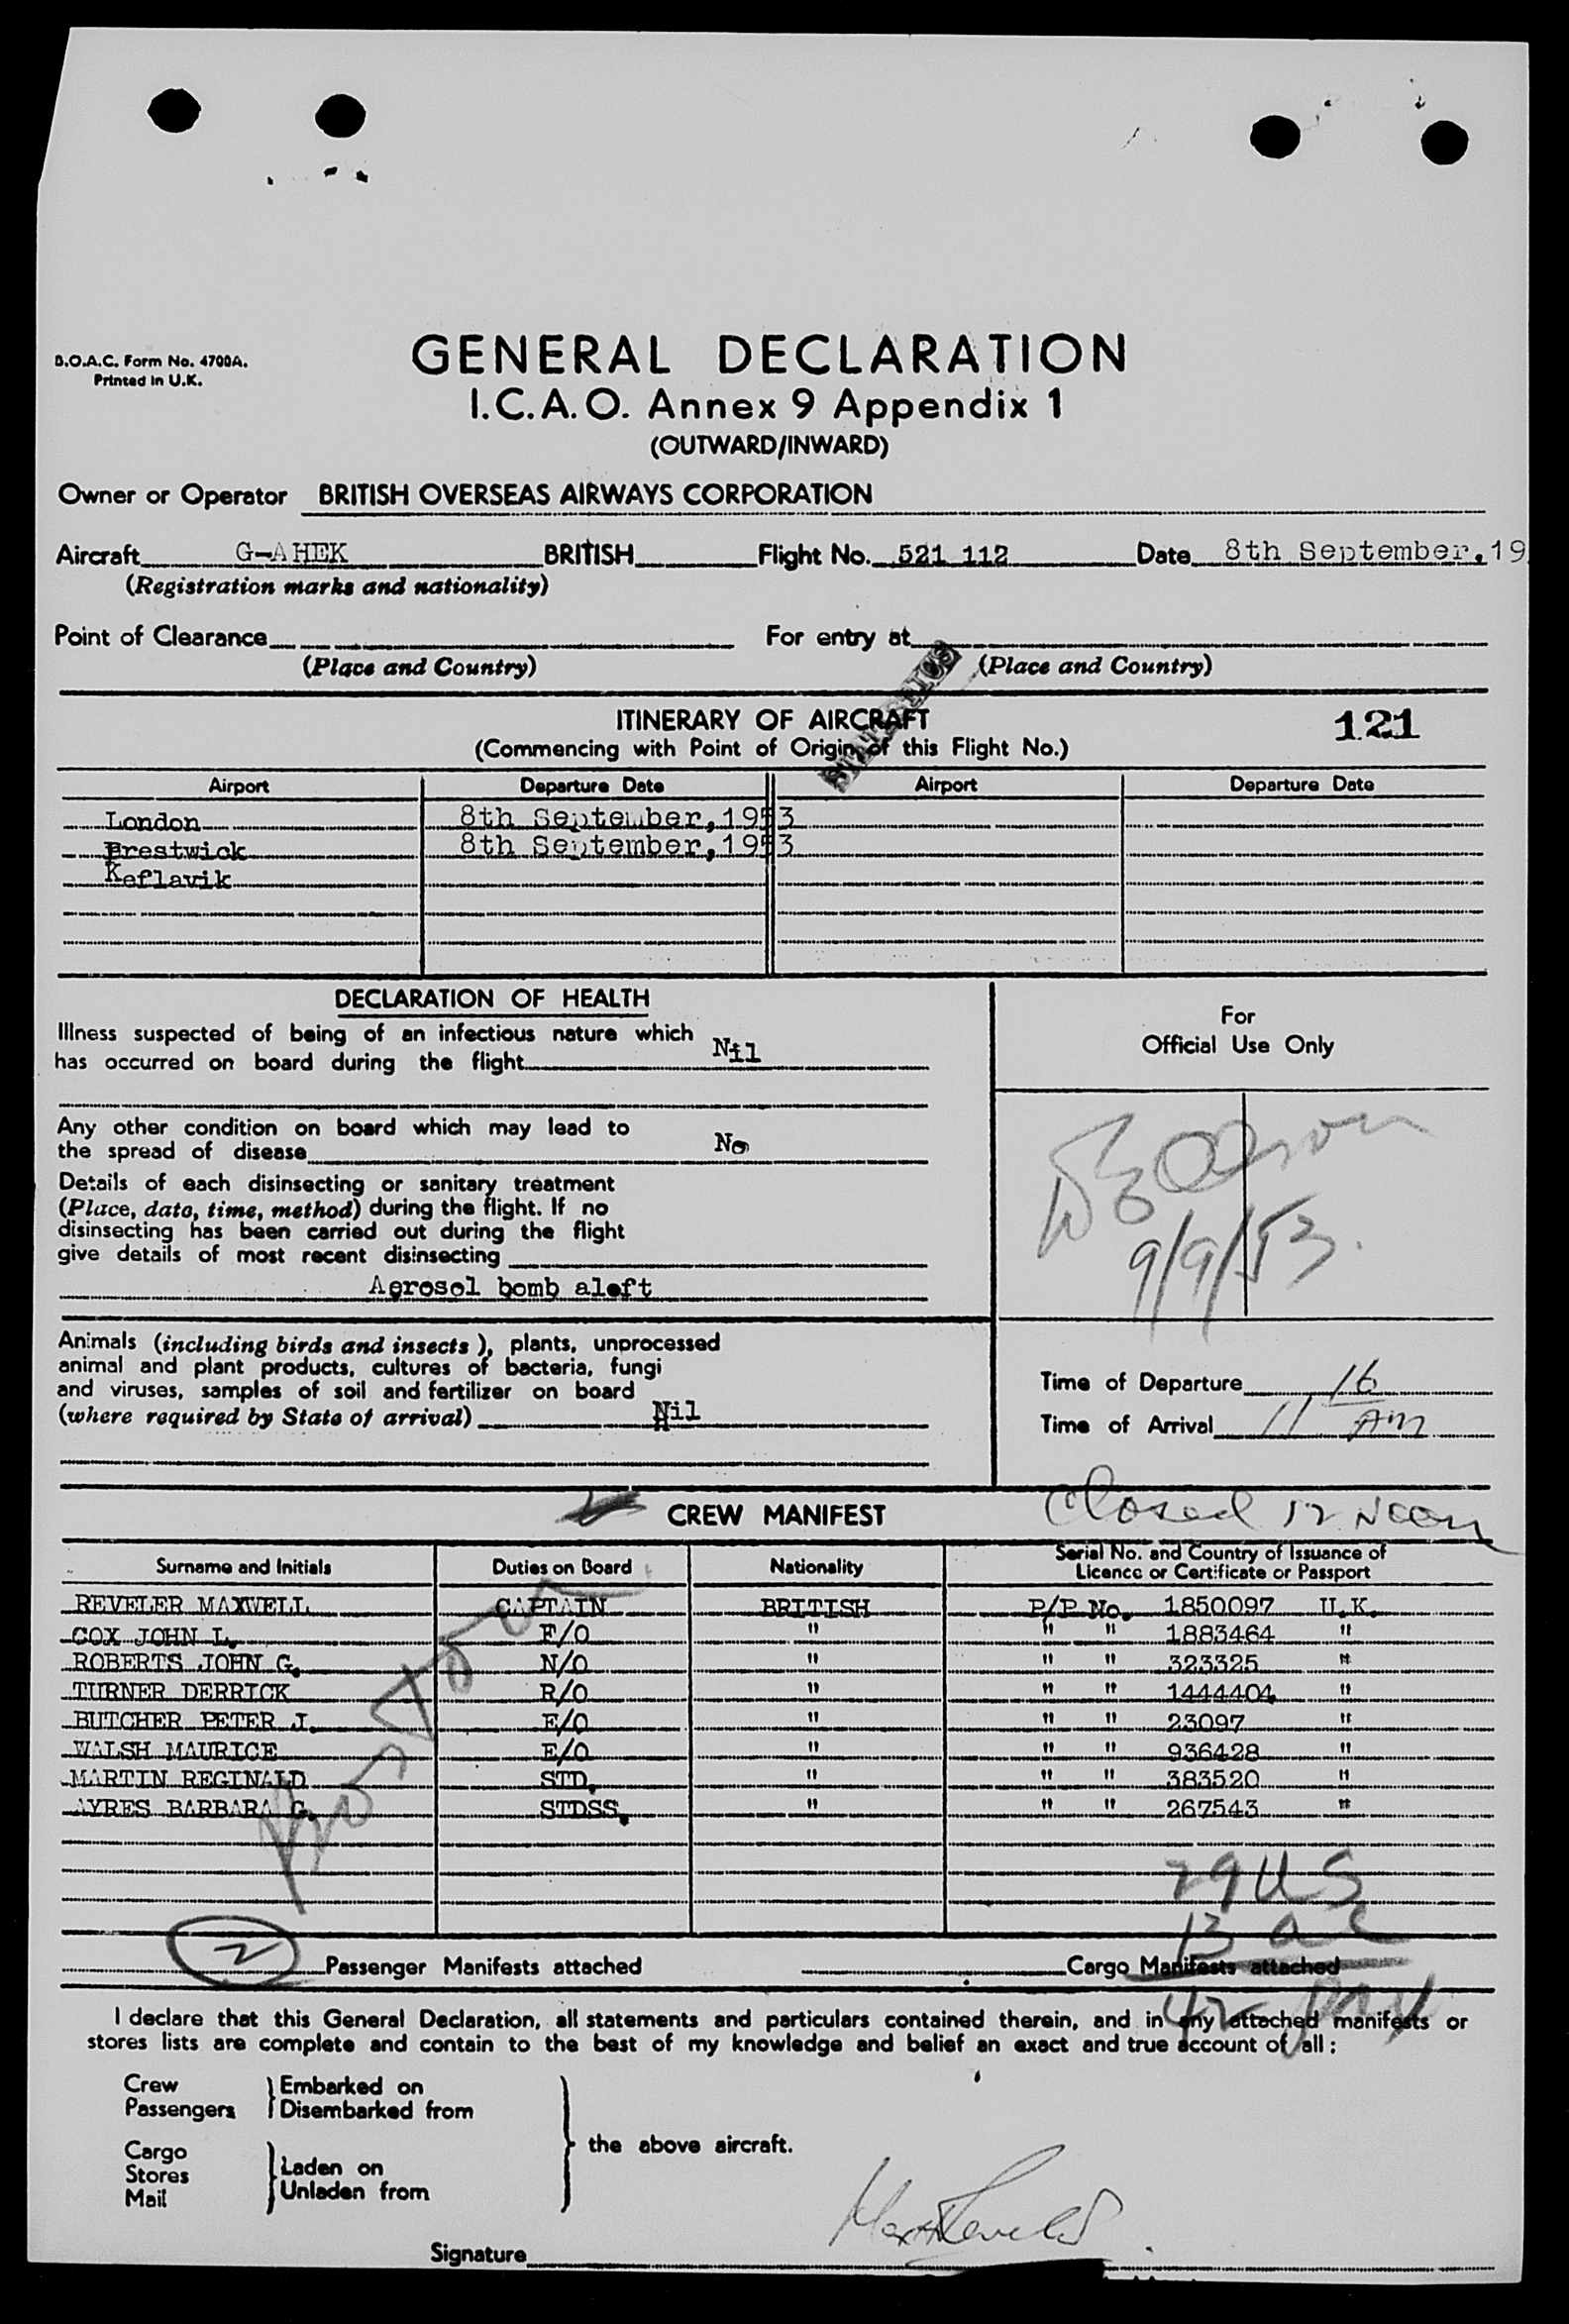 B.O.A.C. Form No. 4700A.
Printed in U.K.
GENERAL DECLARATION
I.C.A.O. Annex 9 Appendix 1
(OUTWARD/INWARD)
Owner or Operator BRITISH OVERSEAS AIRWAYS CORPORATION
Aircraft G-AHEK BRITISH Flight No. 521 112 Date 8th September,19
(Registration marks and nationality)
Point of Clearance For entry at
(Place and Country) (Place and Country)
STATISTICS
ITINERARY OF AIRCRAFT 121
(Commencing with Point of Origin of this Flight No.)
Airport Departure Date Airport Departure Date
London 8th September,1953
Prestwick 8th September,1953
Keflavik
DECLARATION OF HEALTH
Illness suspected of being of an infectious nature which
has occurred on board during the flight Nil
Any other condition on board which may lead to
the spread of disease No
Details of each disinsecting or sanitary treatment
(Place, date, time, method) during the flight. If no
disinsecting has been carried out during the flight
give details of most recent disinsecting
Aerosol bomb aloft
Animals (including birds and insects), plants, unprocessed
animal and plant products, cultures of bacteria, fungi
and viruses, samples of soil and fertilizer on board
(where required by State of arrival) Nil
For
Official Use Only
9/9/53.
Time of Departure 16
Time of Arrival 11 AM
Closed 12 Noon
CREW MANIFEST
Surname and Initials Duties on Board Nationality Serial No. and Country of Issuance of
Licence or Certificate or Passport
REVELER MAXWELL CAPTAIN BRITISH P/P No. 1850097 U.K.
COX JOHN L. F/O " " " 1883464 "
ROBERTS JOHN G. N/O " " " 323325 "
TURNER DERRICK R/O " " " 1444404 "
BUTCHER PETER J. E/O " " " 23097 "
WALSH MAURICE E/O " " " 936428 "
MARTIN REGINALD STD. " " " 383520 "
AYRES BARBARA G. STDSS. " " " 267543 "
Boston
29 US
13 al
42 pax
2 Passenger Manifests attached Cargo Manifests attached
I declare that this General Declaration, all statements and particulars contained therein, and in any attached manifests or
stores lists are complete and contain to the best of my knowledge and belief an exact and true account of all:
Crew Embarked on
Passengers Disembarked from
the above aircraft.
Cargo
Stores Laden on
Mail Unladen from
Signature